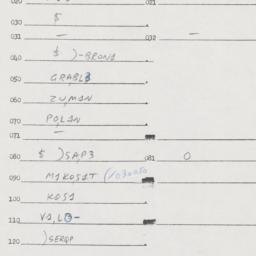 020 021
030 $
031 — 032 —
040 $ )-BRONA
050 GRABLB
060 ZUMAN
070 POLAN
071 —
080 $ )SAP3 081 0
090 MAKOSAT
100 KOSA
110 VA,LO-
120 )SERQP